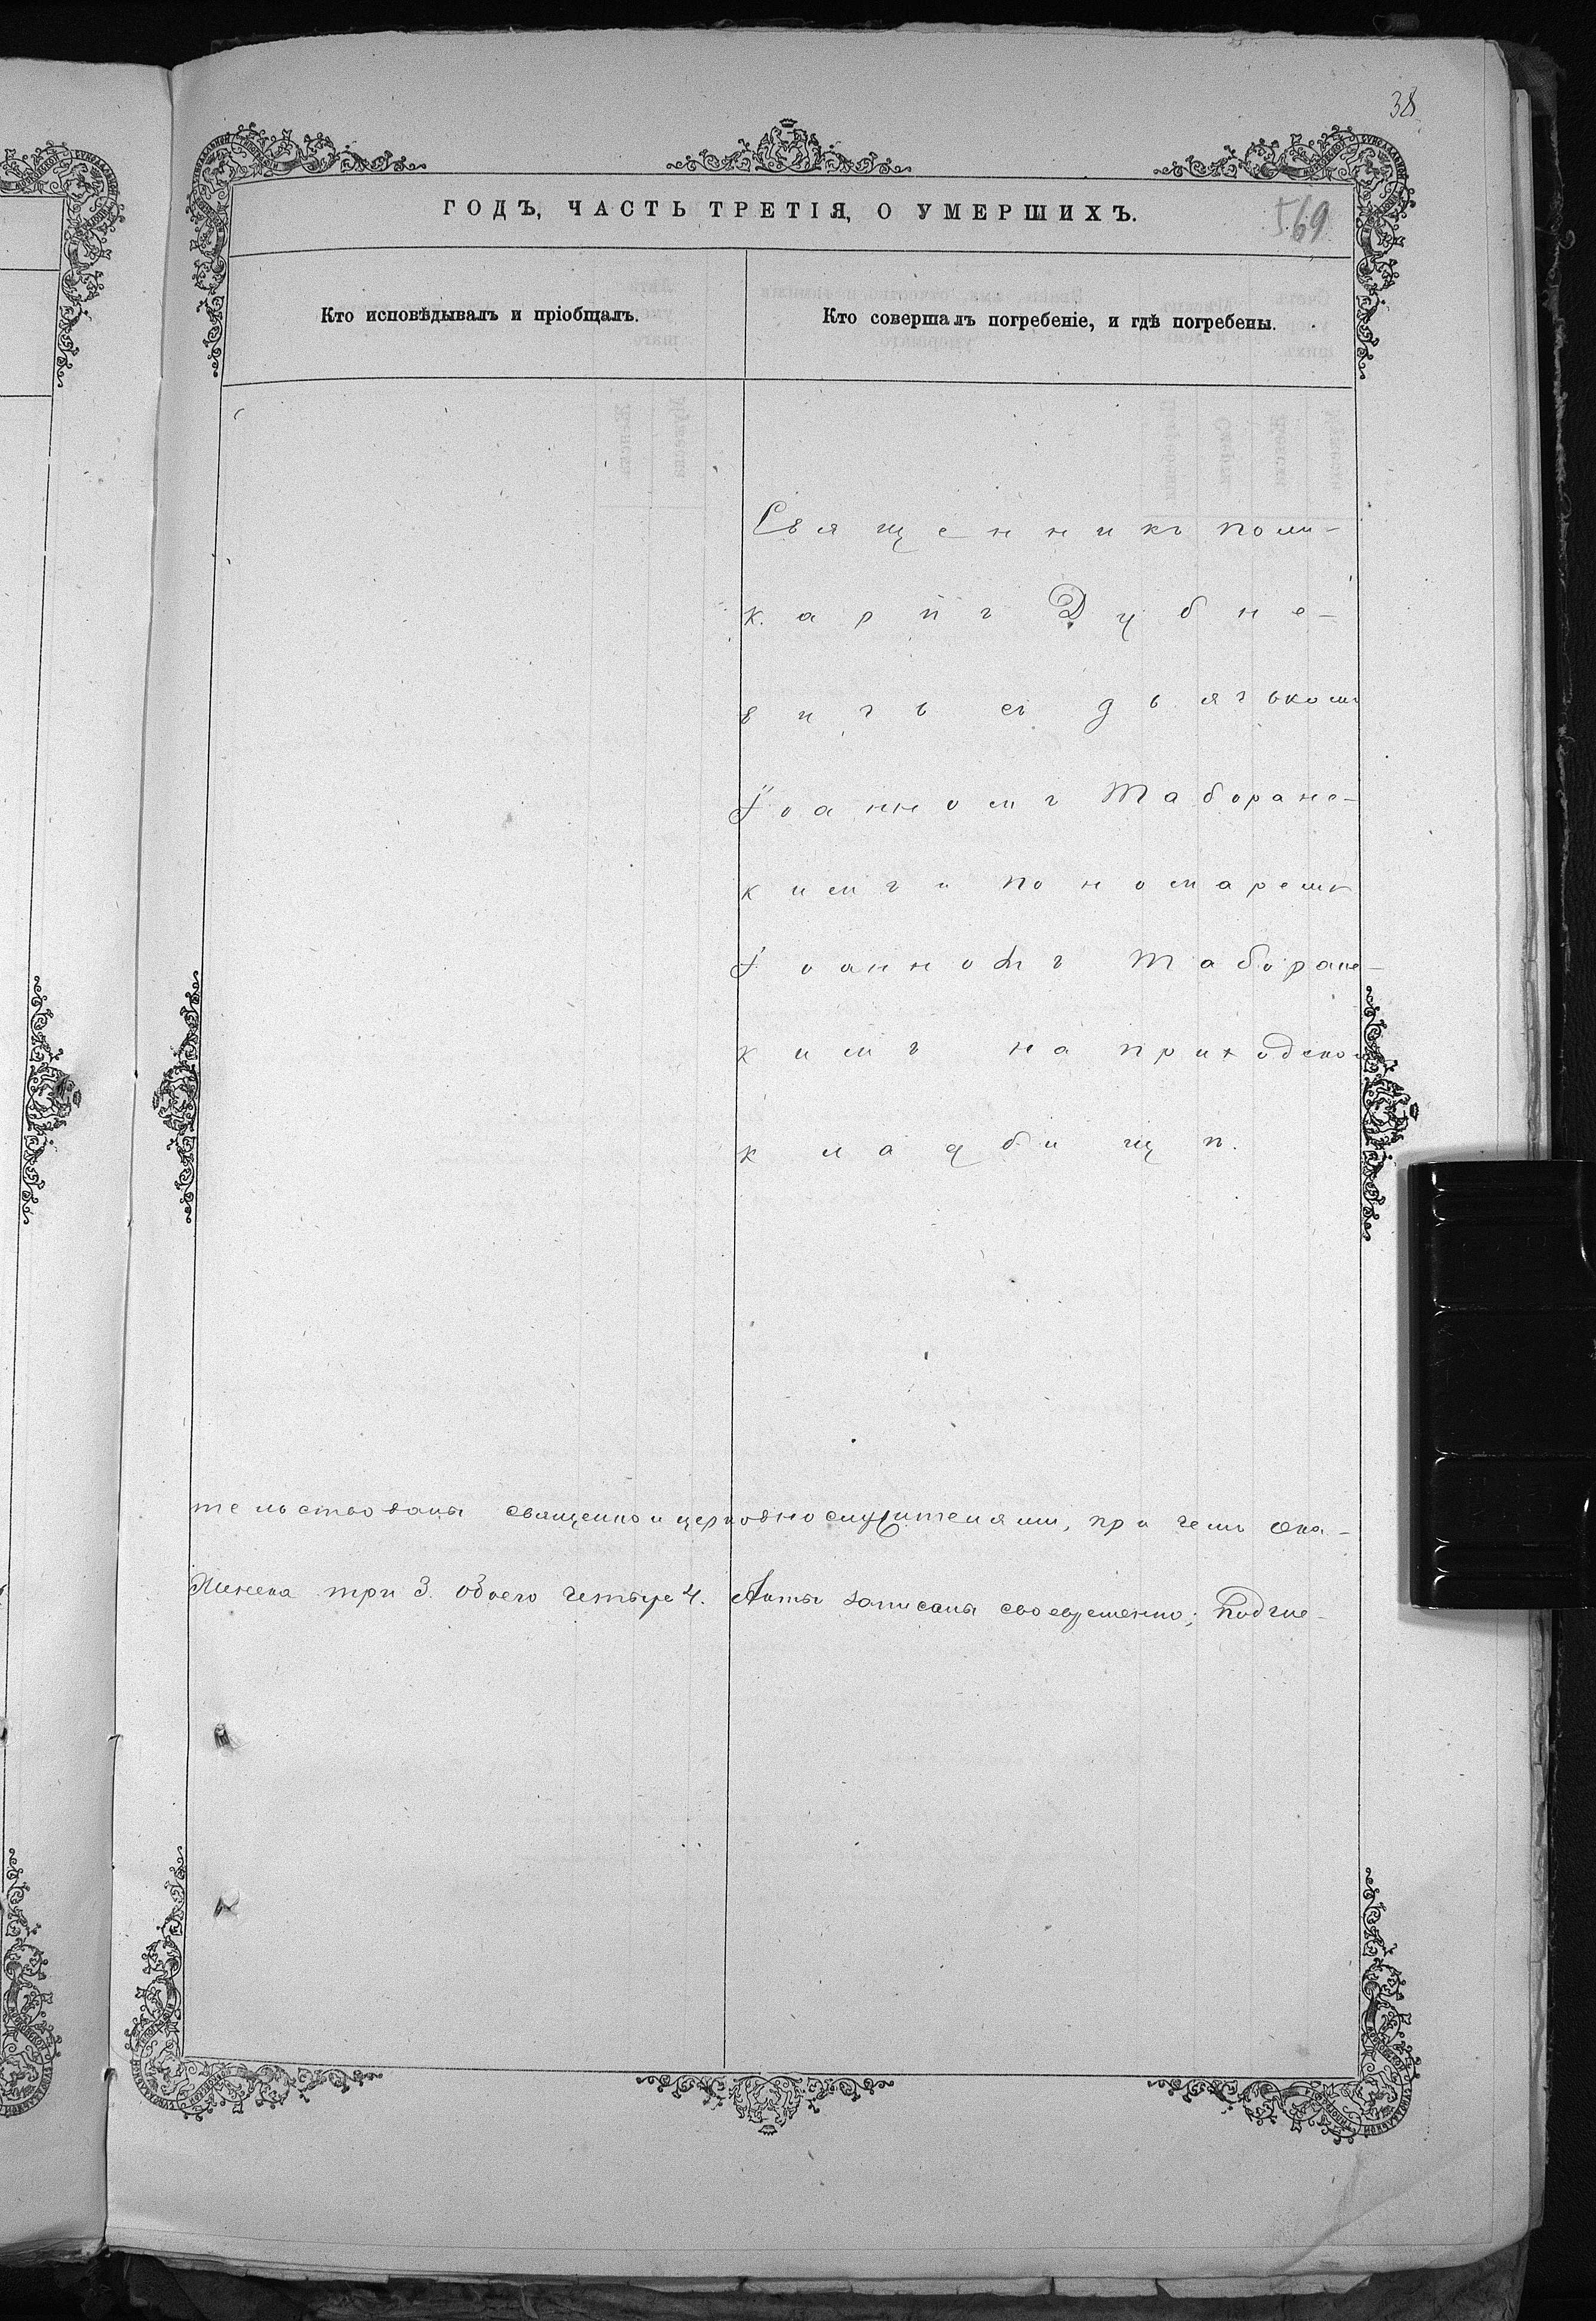 38
ГОДЪ, ЧАСТЬ ТРЕТІЯ, О УМЕРШИХЪ.
569
Кто исповѣдывалъ и пріобщалъ.
Кто совершалъ погребеніе, и гдѣ погребены.
Священникъ Поли-
карпъ Дубне-
вичъ съ дьячькомъ
Іоанномъ Таборанс-
кимъ и пономаремъ
Іоанномъ Таборанс-
кимъ на приходском
кладбищѣ.
тельствованы священно и церковнослужителями, при чемъ ока-
Женска три 3. Обоего четыре 4. Акты записаны своевременно; Подчис-